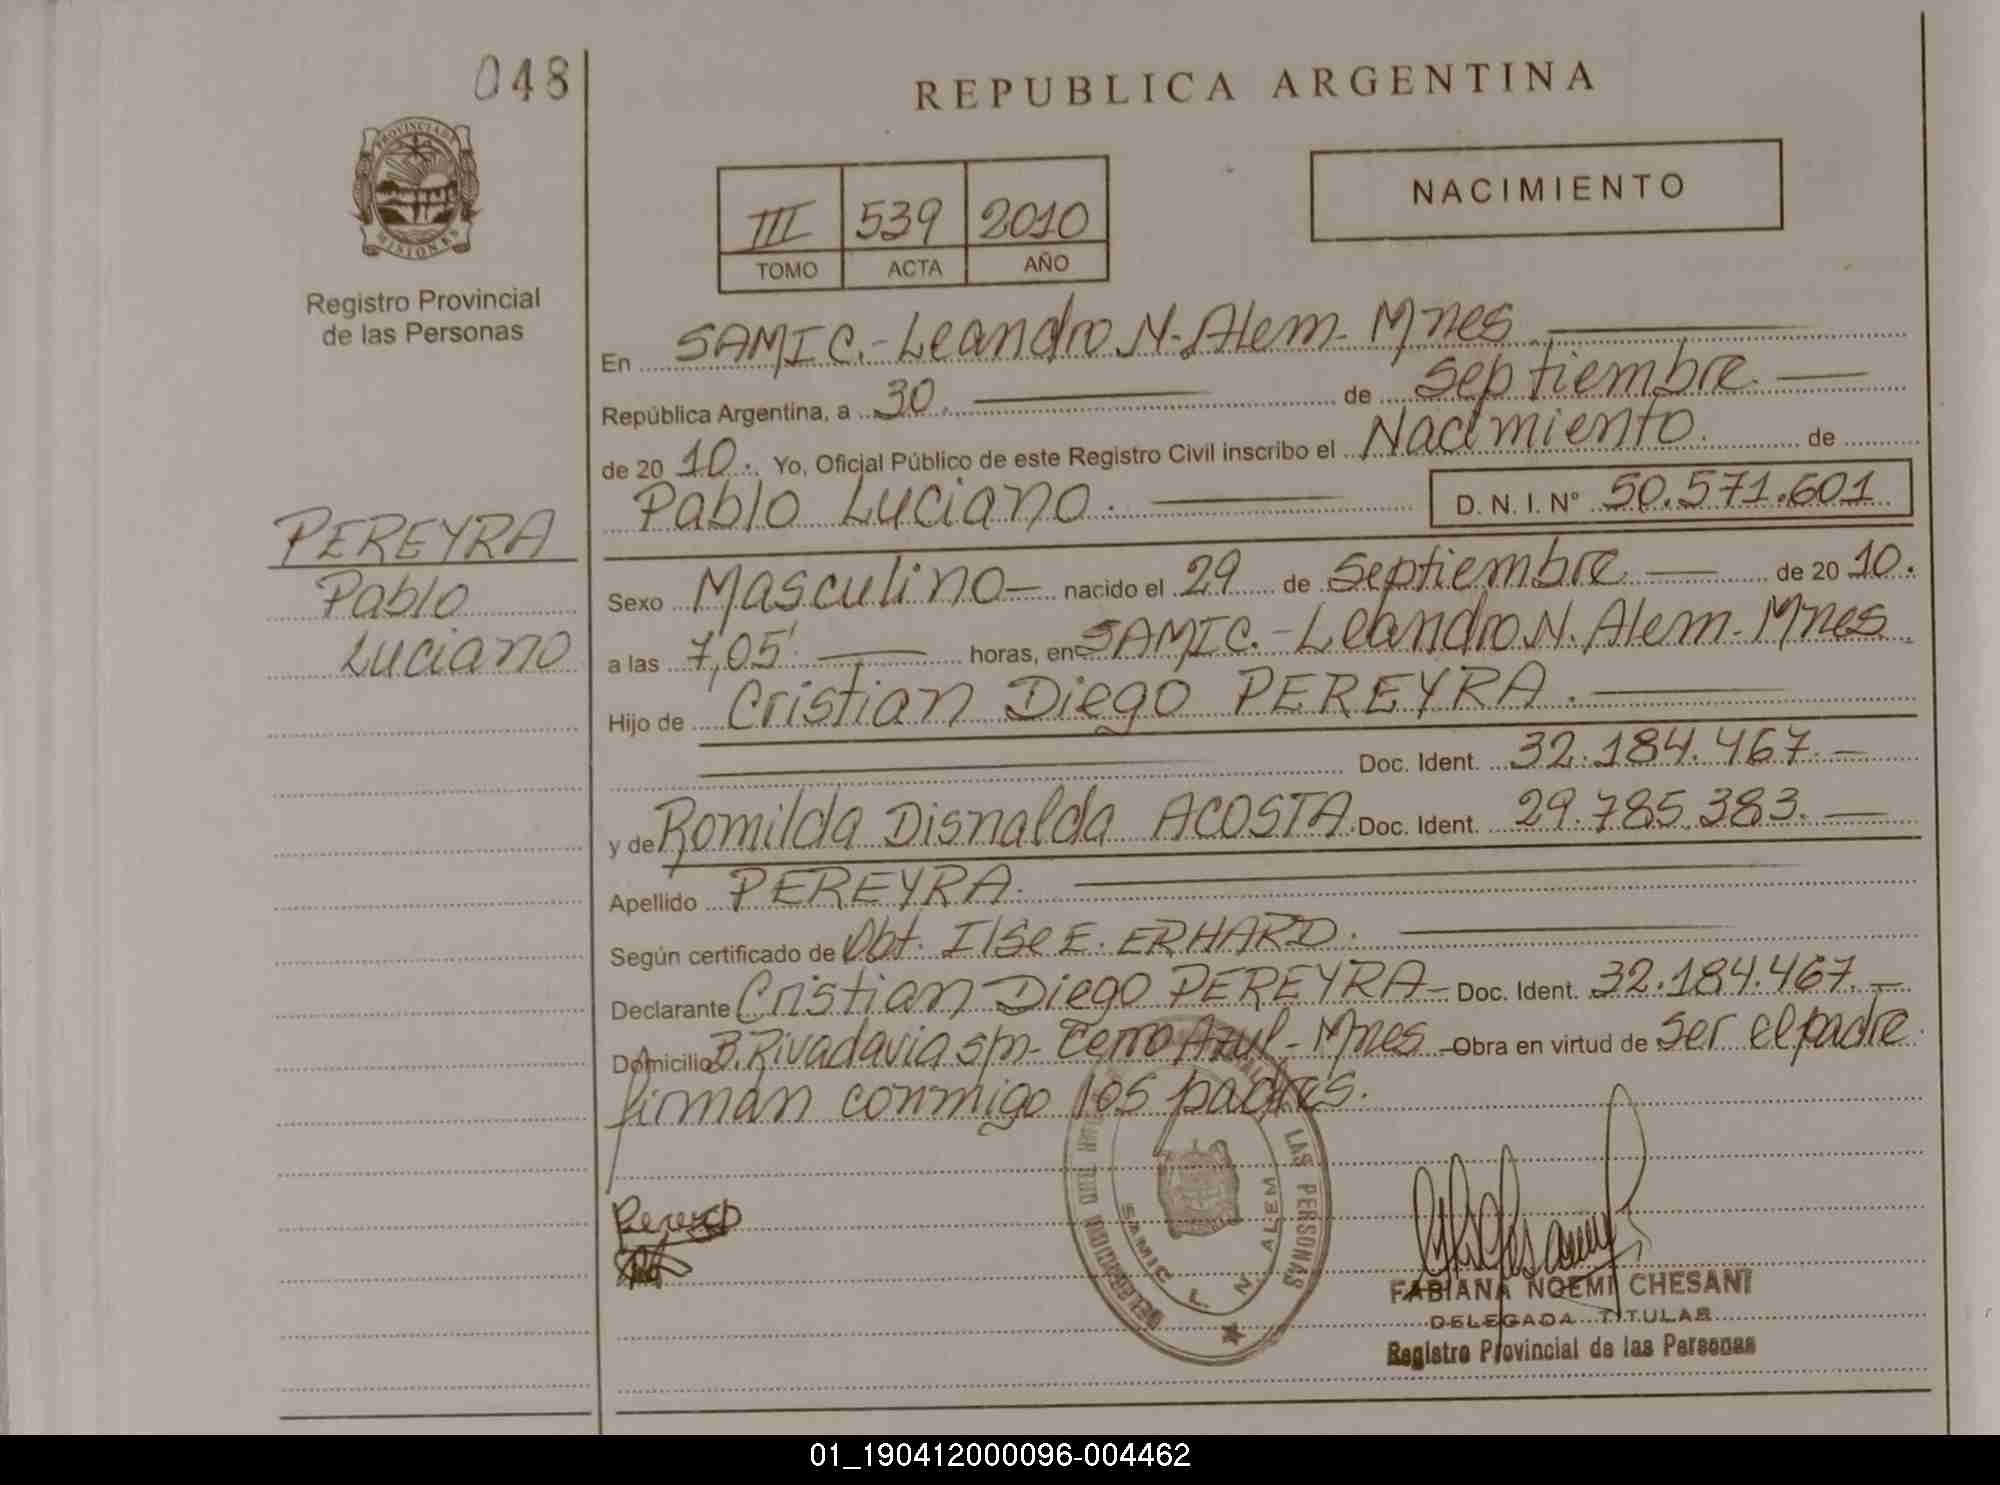 048
REPUBLICA ARGENTINA
PROVINCIA DE
MISIONES
Registro Provincial
de las Personas
III 539 2010
TOMO ACTA AÑO
NACIMIENTO
En SAMIC.-Leandro N.Alem-Mnes
República Argentina, a 30. de Septiembre.
de 20 10. Yo, Oficial Público de este Registro Civil inscribo el Nacimiento. de
Pablo Luciano. D. N. I. N° 50.571.601
PEREYRA
Pablo
Luciano
Sexo Masculino nacido el 29 de Septiembre de 20 10.
a las 7,05' horas, en SAMIC.-Leandro N. Alem-Mnes.
Hijo de Cristian Diego PEREYRA.
Doc. Ident. 32.184.467.
y de Romilda Disnalda ACOSTA. Doc. Ident. 29.785.383.
Apellido PEREYRA.
Según certificado de Obt. Ilse E. ERHARD.
Declarante Cristian Diego PEREYRA- Doc. Ident. 32.184.467.
Domicilio B.Rivadavia s/n- Cerro Azul- Mnes Obra en virtud de ser el padre.
firman conmigo los padres.
LAS PERSONAS
SAMIC L. N. ALEM
FABIANA NOEMI CHESANI
DELEGADA TITULAR
Registro Provincial de las Personas
01_190412000096-004462